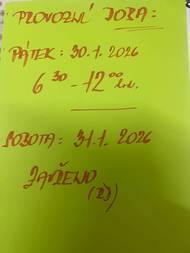 PROVOZNÍ DOBA:
PÁTEK: 30.1.2026
6³⁰ - 12⁰⁰ hod.
SOBOTA: 31.1.2026
ZAVŘENO